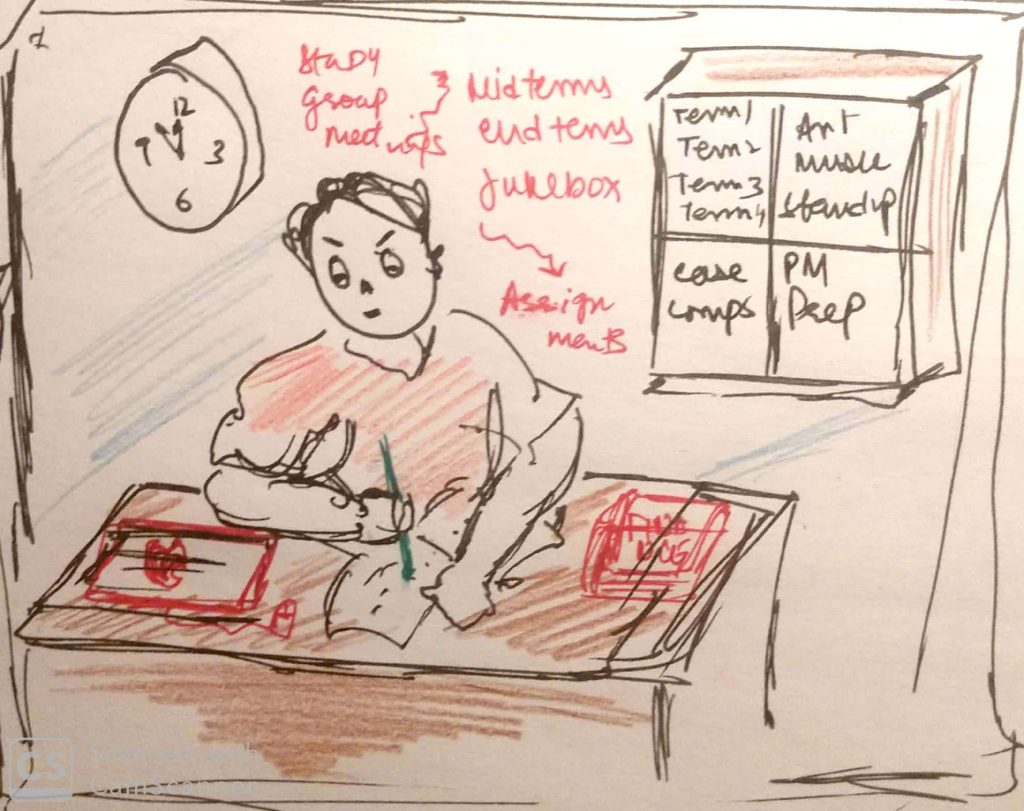 12
9 3
6
Study
group
meetings
Midterms
end terms
Jukebox
Assign
ments
Term1
Term2
Term3
Term4
Art
Music
Standup
case
comps
PM
Prep
CS
Scanned with
CamScanner